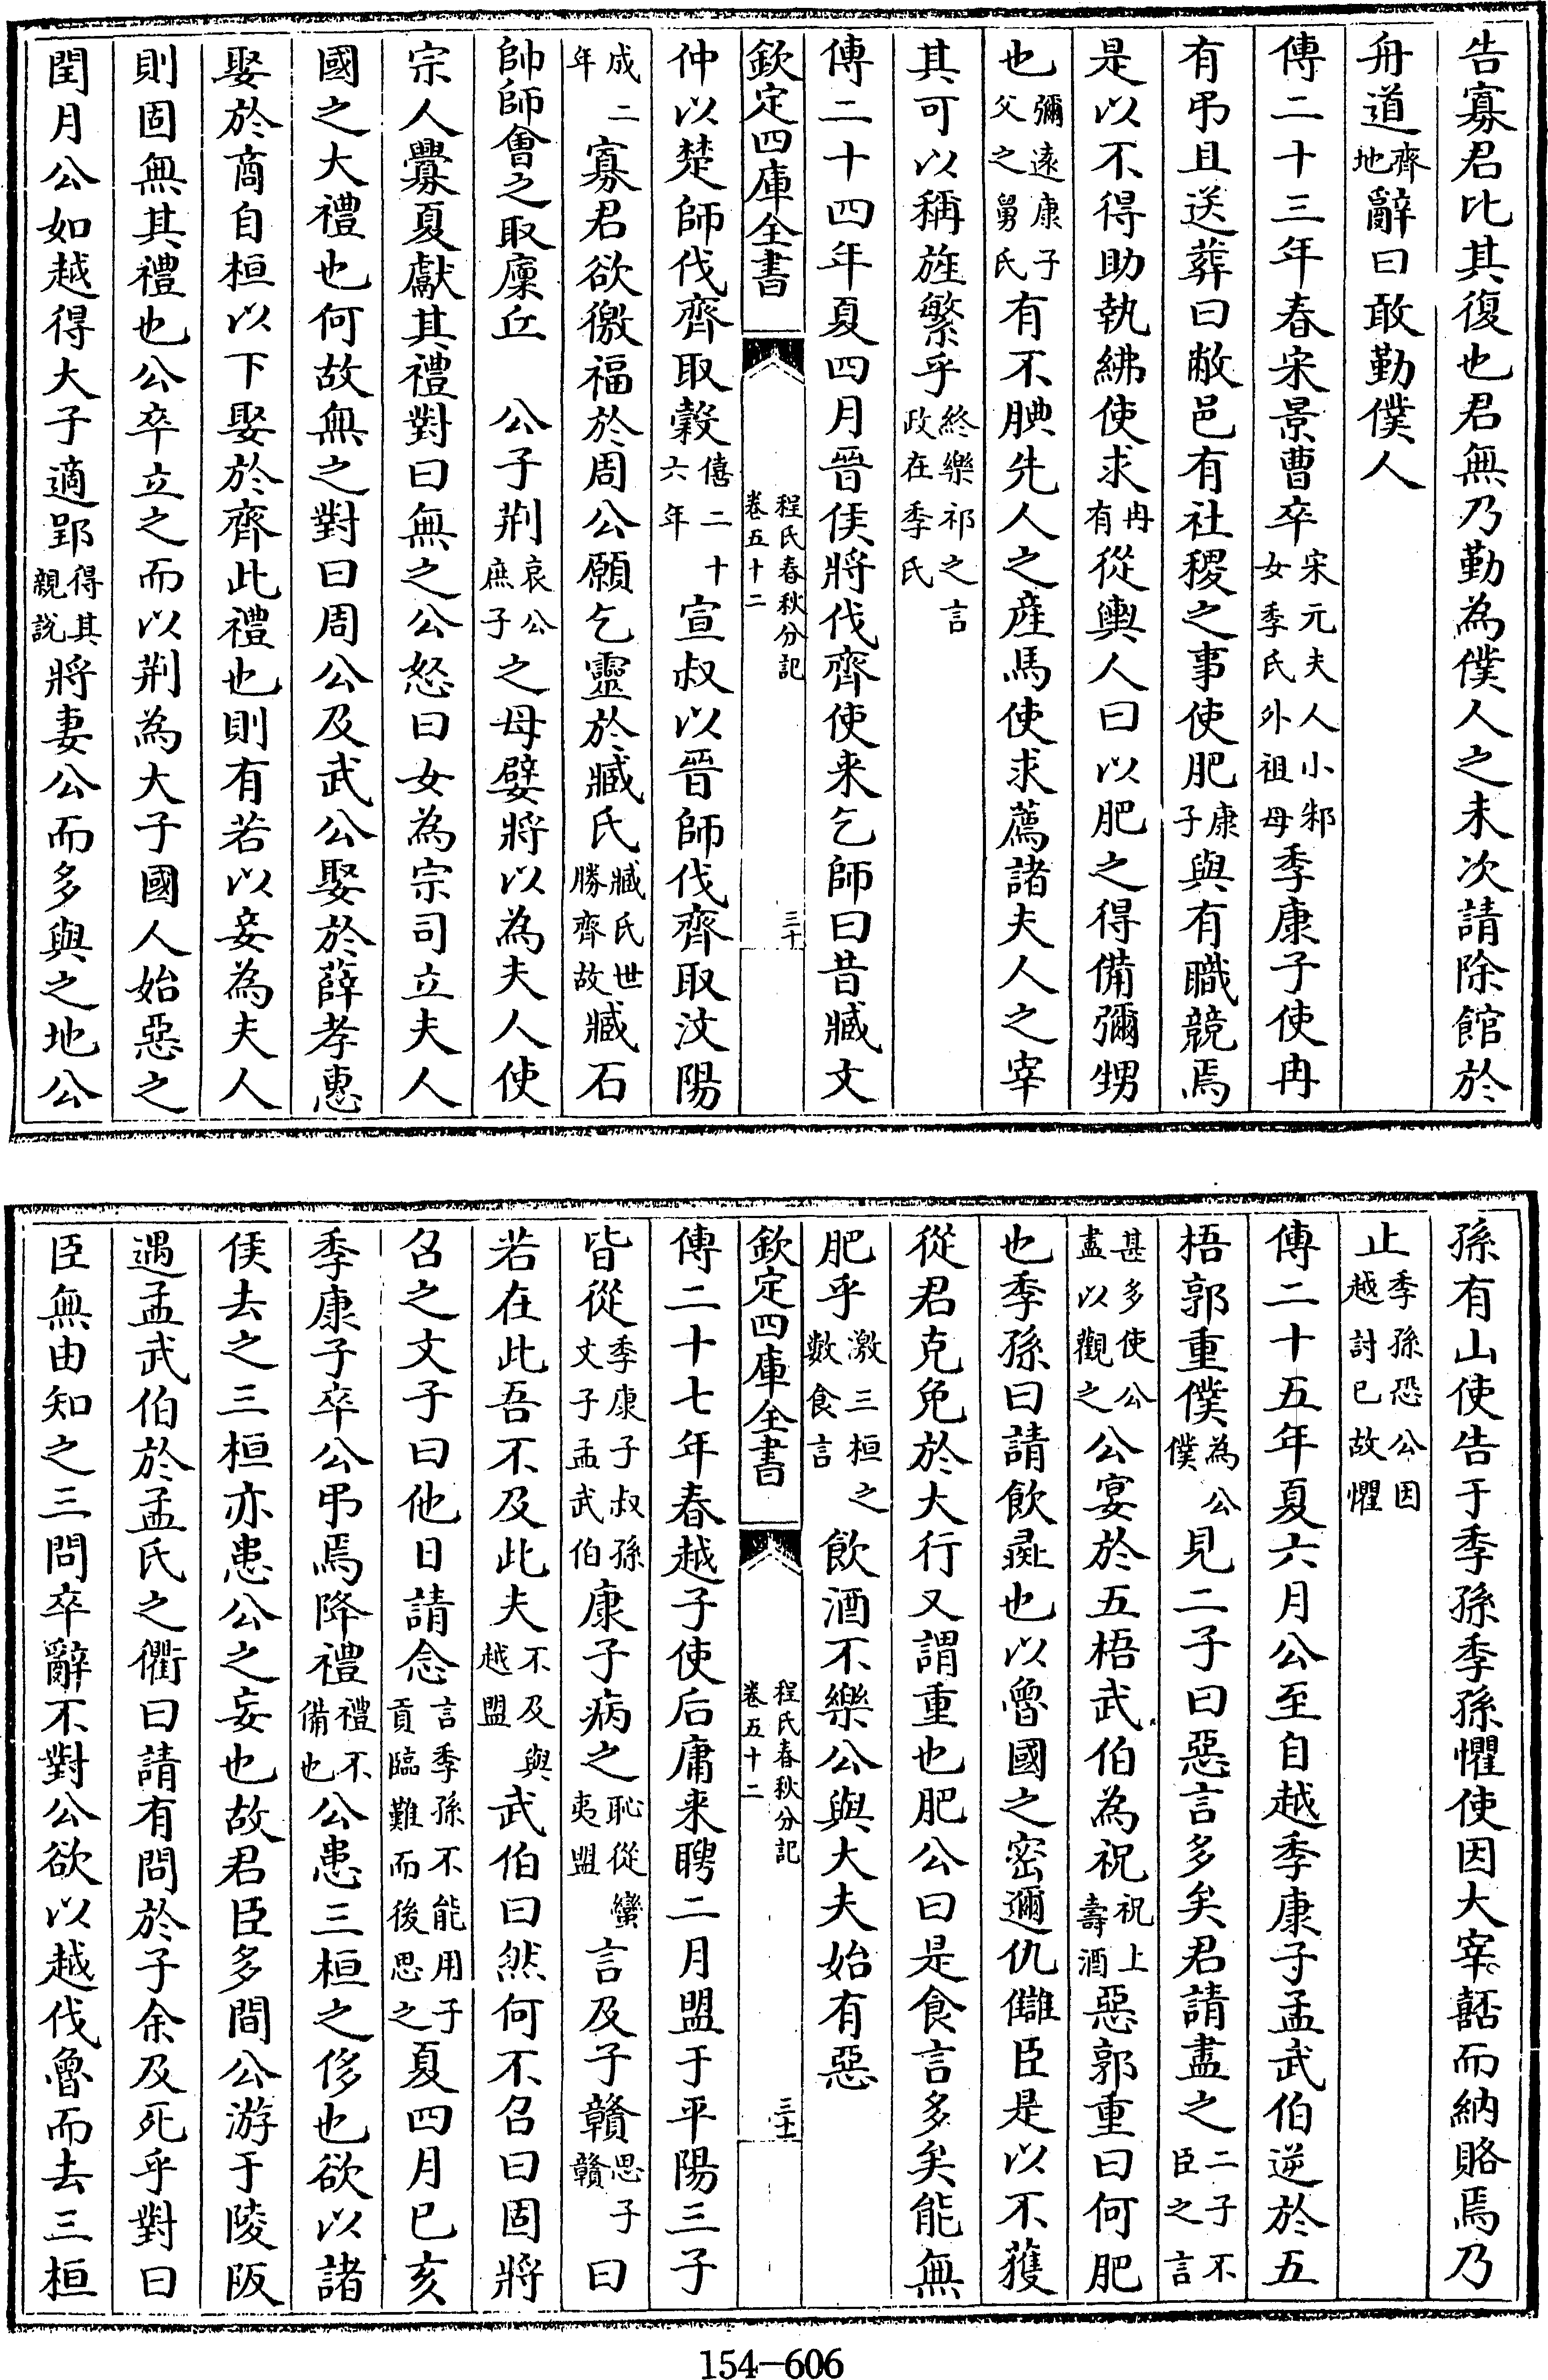 告寡君比其復也君無乃勤為僕人之未次請除館於
舟道齊地辭曰敢勤僕人
傳二十三年春宋景曹卒宋元夫人小邾女季氏外祖母季康子使冉
有弔且送葬曰敝邑有社稷之事使肥康子與有職競焉
是以不得助執紼使求冉有從輿人曰以肥之得備彌甥
也彌遠康子父之舅氏有不腆先人之産馬使求薦諸夫人之宰
其可以稱旌繁乎終樂祁之言政在季氏
傳二十四年夏四月晉侯將伐齊使来乞師曰昔臧文
欽定四庫全書
程氏春秋分記
卷五十二
三十
仲以楚師伐齊取穀僖二十六年宣叔以晉師伐齊取汶陽
成二年寡君欲徼福於周公願乞靈於臧氏臧氏世勝齊故臧石
帥師會之取廩丘 公子荆哀公庶子之母嬖將以為夫人使
宗人釁夏獻其禮對曰無之公怒曰女為宗司立夫人
國之大禮也何故無之對曰周公及武公娶於薛孝惠
娶於商自桓以下娶於齊此禮也則有若以妾為夫人
則固無其禮也公卒立之而以荆為大子國人始惡之
閏月公如越得大子適郢得其親說將妻公而多與之地公
孫有山使告于季孫季孫懼使因大宰嚭而納賂焉乃
止季孫恐公因越討已故懼
傳二十五年夏六月公至自越季康子孟武伯逆於五
梧郭重僕為公僕見二子曰惡言多矣君請盡之二子不臣之言
甚多使公盡以觀之公宴於五梧武伯為祝祝上壽酒惡郭重曰何肥
也季孫曰請飲彘也以魯國之密邇仇讎臣是以不獲
從君克免於大行又謂重也肥公曰是食言多矣能無
肥乎激三桓之數食言飲酒不樂公與大夫始有惡
欽定四庫全書
程氏春秋分記
卷五十二
三十一
傳二十七年春越子使后庸来聘二月盟于平陽三子
皆從季康子叔孫文子孟武伯康子病之恥從蠻夷盟言及子贛思子贛曰
若在此吾不及此夫不及與越盟武伯曰然何不召曰固將
召之文子曰他日請念言季孫不能用子貢臨難而後思之夏四月已亥
季康子卒公弔焉降禮禮不備也公患三桓之侈也欲以諸
侯去之三桓亦患公之妄也故君臣多間公游于陵阪
遇孟武伯於孟氏之衢曰請有問於子余及死乎對曰
臣無由知之三問卒辭不對公欲以越伐魯而去三桓
154-606